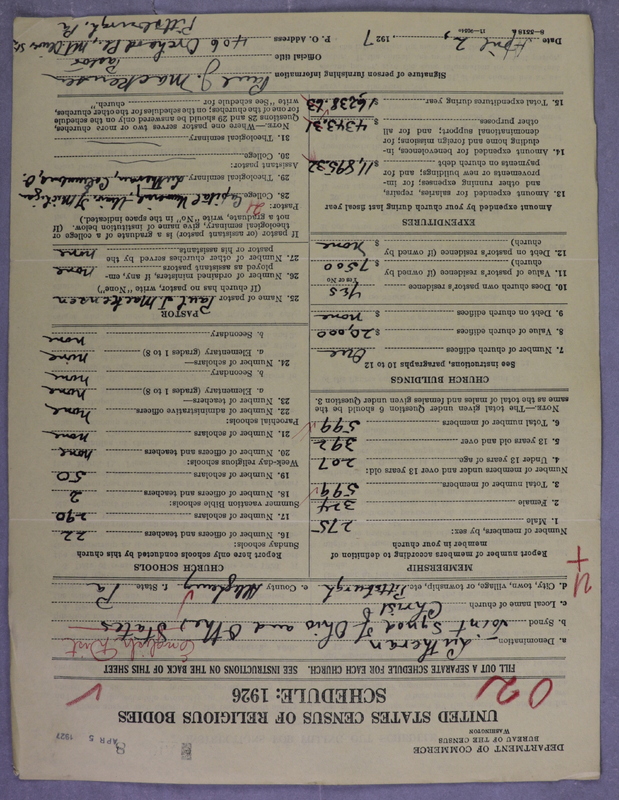 DEPARTMENT OF COMMERCE
BUREAU OF THE CENSUS
WASHINGTON
8
APR 5 1927
UNITED STATES CENSUS OF RELIGIOUS BODIES
SCHEDULE: 1926
02
FILL OUT A SEPARATE SCHEDULE FOR EACH CHURCH. SEE INSTRUCTIONS ON THE BACK OF THIS SHEET
a. Denomination Lutheran English Dist
b. Synod Joint Synod of Ohio and Other States
c. Local name of church Christ
d. City, town, village, or township, etc. Pittsburgh e. County Allegheny f. State Pa
4+
MEMBERSHIP
Report number of members according to definition of member in your church
Number of members, by sex:
1. Male 275
2. Female 324
3. Total number of members 599
Number of members under and over 13 years old:
4. Under 13 years of age 207
5. 13 years old and over 392
6. Total number of members 599
NOTE.—The total given under Question 6 should be the same as the total of males and females given under Question 3.
CHURCH BUILDINGS
See instructions, paragraphs 10 to 12
7. Number of church edifices One
8. Value of church edifices $ 20,000
9. Debt on church edifices $ none
10. Does church own pastor's residence Yes
Yes or No
11. Value of pastor's residence (if owned by church) $ 7500
12. Debt on pastor's residence (if owned by church) $ none
EXPENDITURES
Amount expended by your church during last fiscal year
13. Amount expended for salaries, repairs, and other running expenses; for improvements or new buildings; and for payments on church debt $ 11,895.32
14. Amount expended for benevolences, including home and foreign missions; for denominational support; and for all other purposes $ 4343.31
15. Total expenditures during year $ 16,238.63
CHURCH SCHOOLS
Report here only schools conducted by this church
Sunday schools:
16. Number of officers and teachers 22
17. Number of scholars 290
Summer vacation Bible schools:
18. Number of officers and teachers 2
19. Number of scholars 50
Week-day religious schools:
20. Number of officers and teachers none
21. Number of scholars none
Parochial schools:
22. Number of administrative officers none
23. Number of teachers—
a. Elementary (grades 1 to 8) none
b. Secondary none
24. Number of scholars—
a. Elementary (grades 1 to 8) none
b. Secondary none
PASTOR
25. Name of pastor Paul J Mackensen
(If church has no pastor, write "None")
26. Number of ordained ministers, if any, employed as assistant pastors none
27. Number of other churches served by the pastor or his assistants none
If pastor (or assistant pastor) is a graduate of a college or theological seminary, give name of institution below. (If not a graduate, write "No" in the space indicated.)
Pastor:
28. College Capital University
29. Theological seminary Lutheran, Columbus, O.
Assistant pastor:
30. College
31. Theological seminary
NOTE.—Where one pastor serves two or more churches, Questions 28 and 29 should be answered only on the schedule for one of the churches; on the schedules for the other churches, write "See schedule for church."
Signature of person furnishing information Paul J. Mackensen
Official title Pastor
P. O. Address 406 Orchard Pl., Mt. Oliver Sta.
Pittsburgh, Pa
Date April 2, 1927